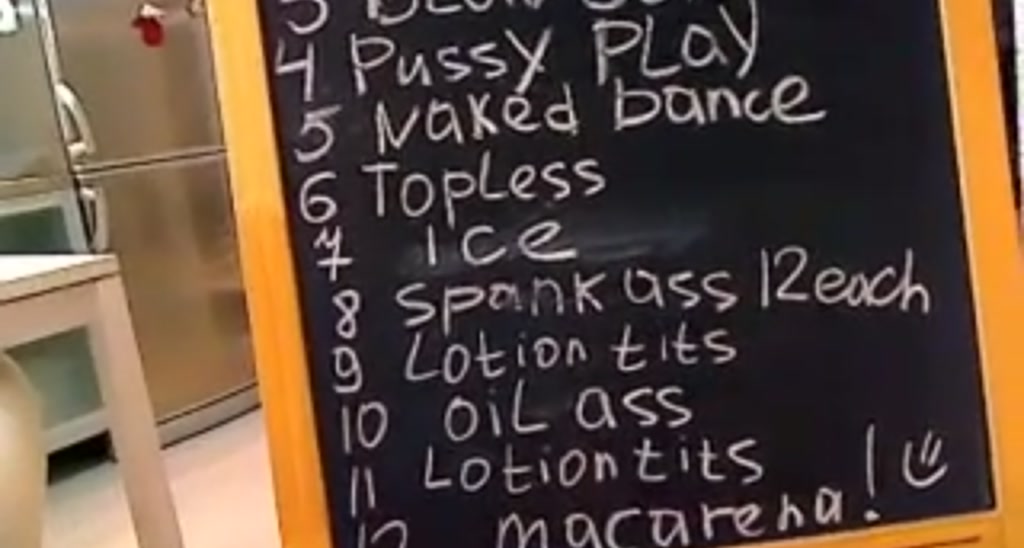 4 Pussy PLay
5 Naked Dance
6 TopLess
7 ice
8 spank ass 12 each
9 Lotion tits
10 oiL ass
11 Lotion tits
12 macarena!